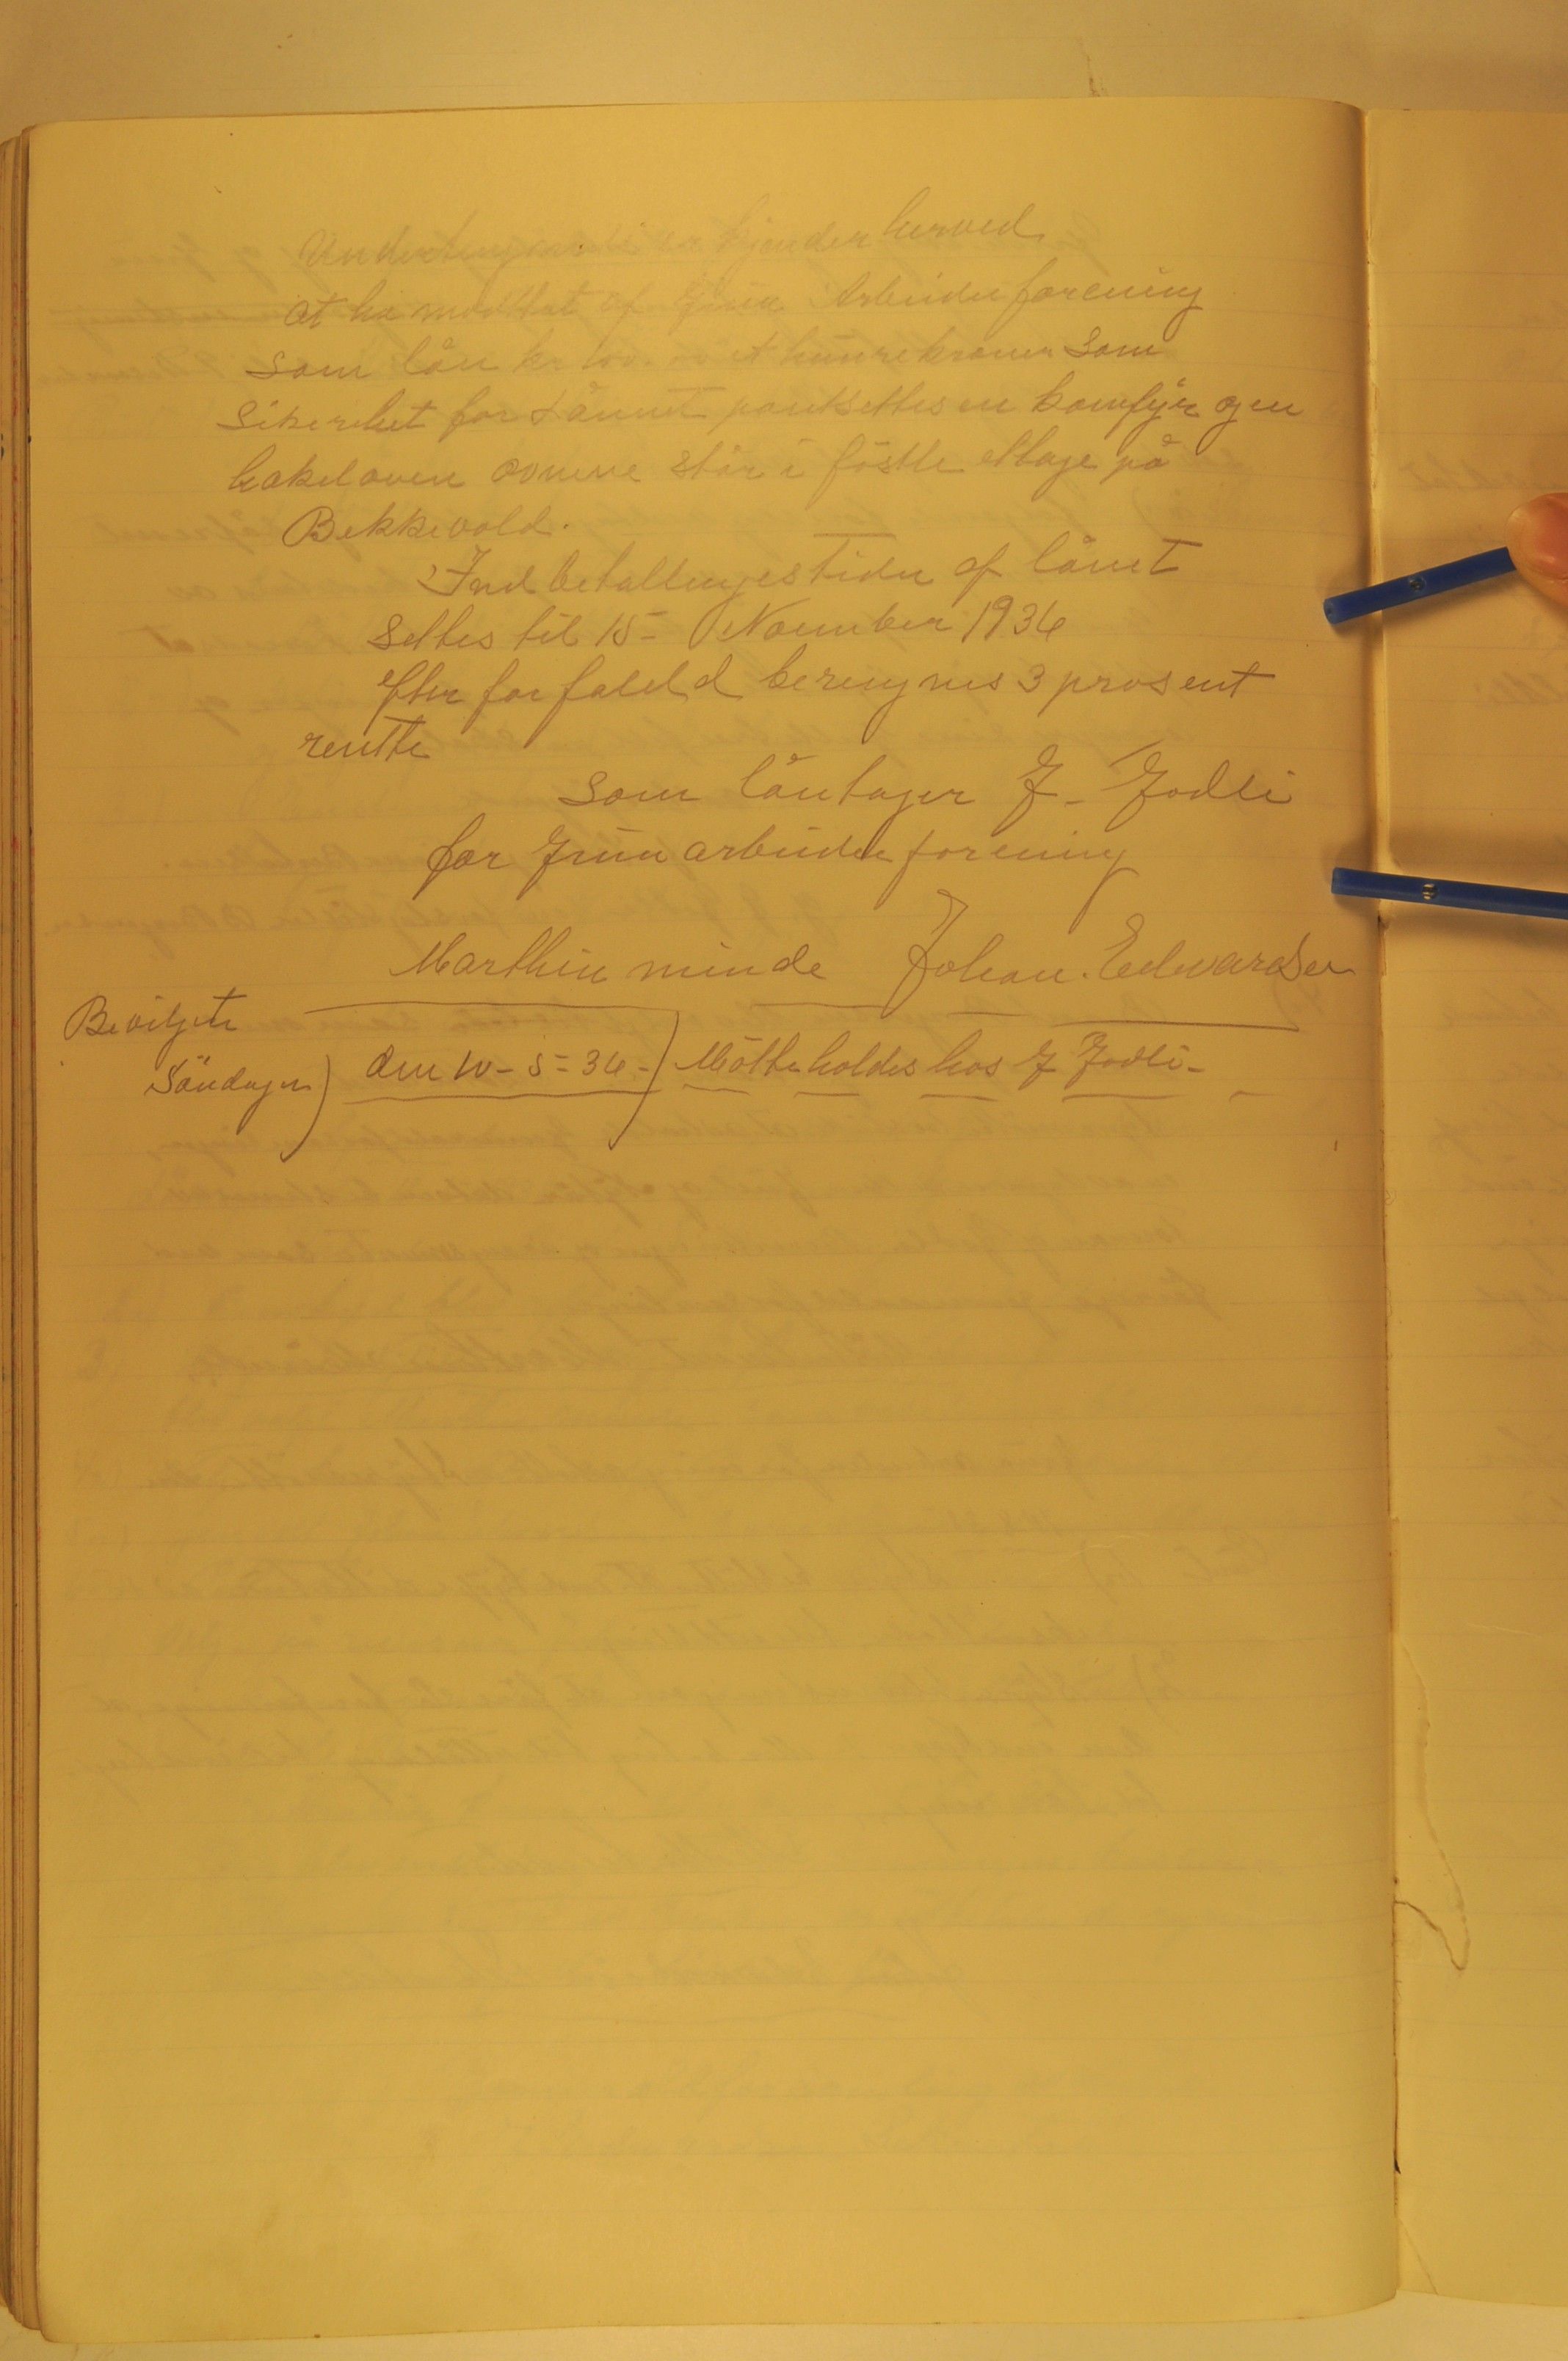 Undertengnede kjender herved
at ha modtat af Grue Arbeider forening
som lån kr 100. et hundre kroner Som
Sikerhet for Lånnet pantsettes en komfyr og en
kakelaven ovnene står i föstte ettage på
Bekkevold.
Indbetallinges tiden af lånet
Settes til 15 - November 1936
efter forfaldd berengnes 3 prosent
rentte
Som låntager J - Jodli
for Grue arbeider forening
Marthin minde Johan. Edwardsen
Bevilgete
Söndagen) den 10 - 5 = 36 -) Mötte holdes hos J Jodli -